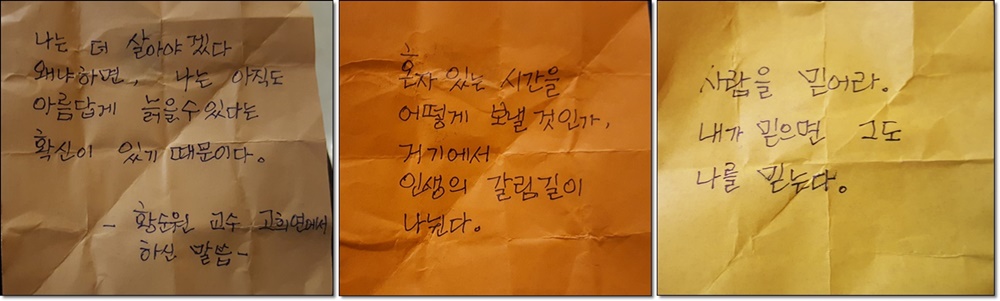 나는 더 살아야 겠다
왜냐하면, 나는 아직도
아름답게 늙을수 있다는
확신이 있기 때문이다.
- 황순원 교수 고희연에서
하신 말씀 -
혼자 있는 시간을
어떻게 보낼 것인가,
거기에서
인생의 갈림길이
나뉜다.
사람을 믿어라.
내가 믿으면 그도
나를 믿는다.